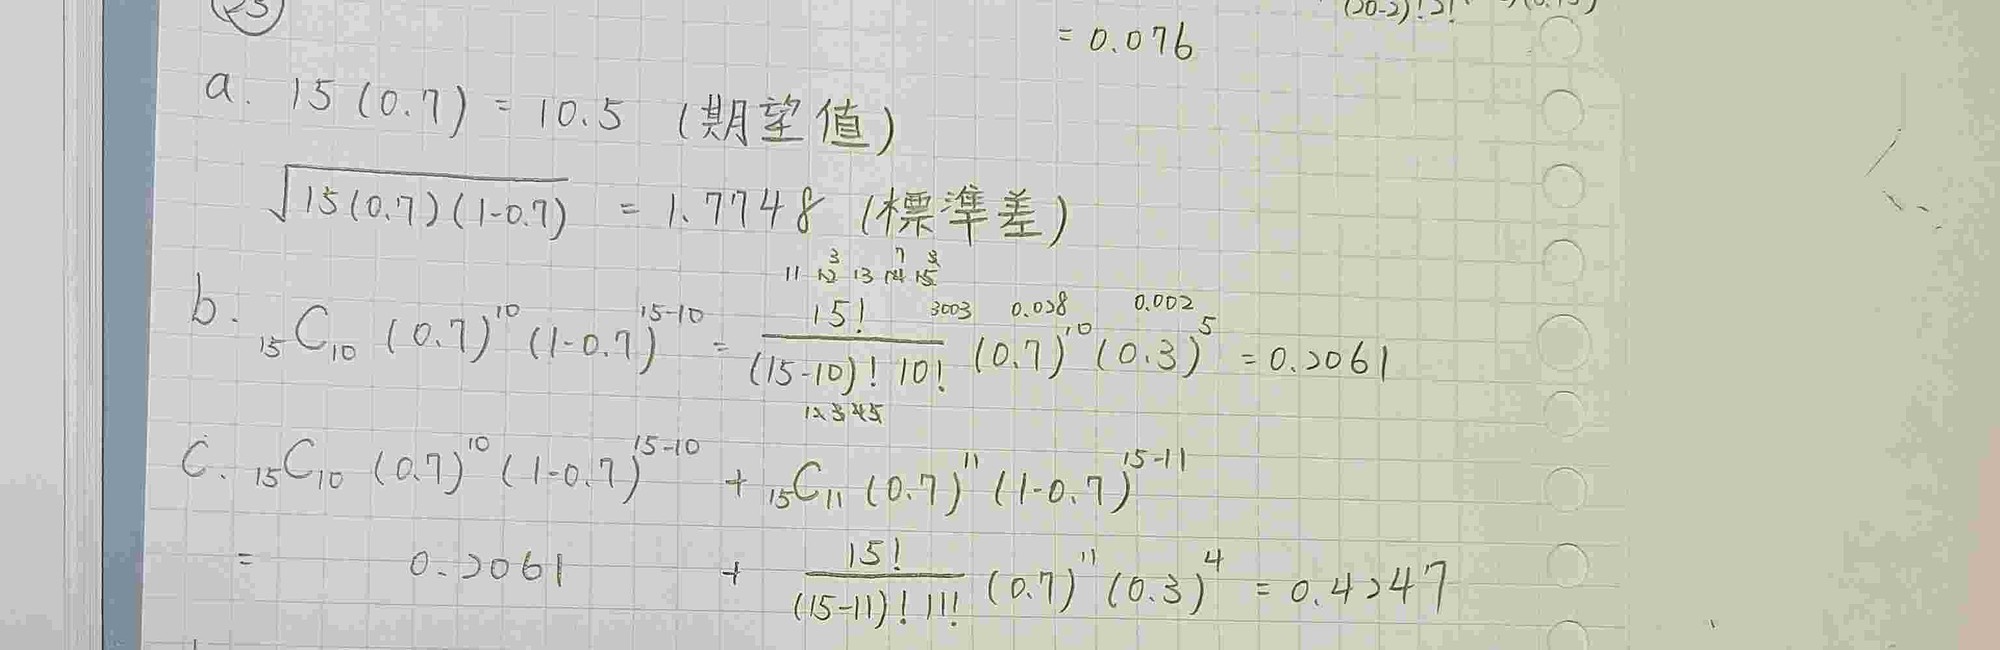 23
= 0.076
a. 15 (0.7) = 10.5 (期望值)
√15(0.7)(1-0.7) = 1.7748 (標準差)
3 7 3
11 12 13 14 15
b. ₁₅C₁₀ (0.7)¹⁰ (1-0.7)¹⁵⁻¹⁰ = 15! / (15-10)! 10! (0.7)¹⁰ (0.3)⁵ = 0.2061
3003 0.028 0.002
1 2 3 4 5
c. ₁₅C₁₀ (0.7)¹⁰ (1-0.7)¹⁵⁻¹⁰ + ₁₅C₁₁ (0.7)¹¹ (1-0.7)¹⁵⁻¹¹
= 0.2061 + 15! / (15-11)! 11! (0.7)¹¹ (0.3)⁴ = 0.4247